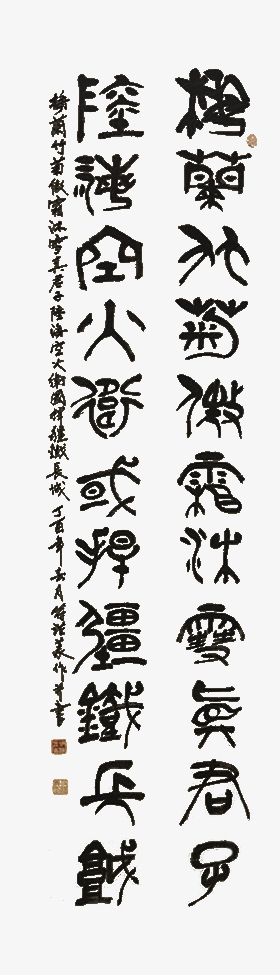 梅蘭竹菊傲霜沐雪眞君子
陸海空火衛或捍疆鐵長城
梅蘭竹菊傲霜沐雪真君子陸海空火衛國捍疆鐵長城 丁酉年 作并書